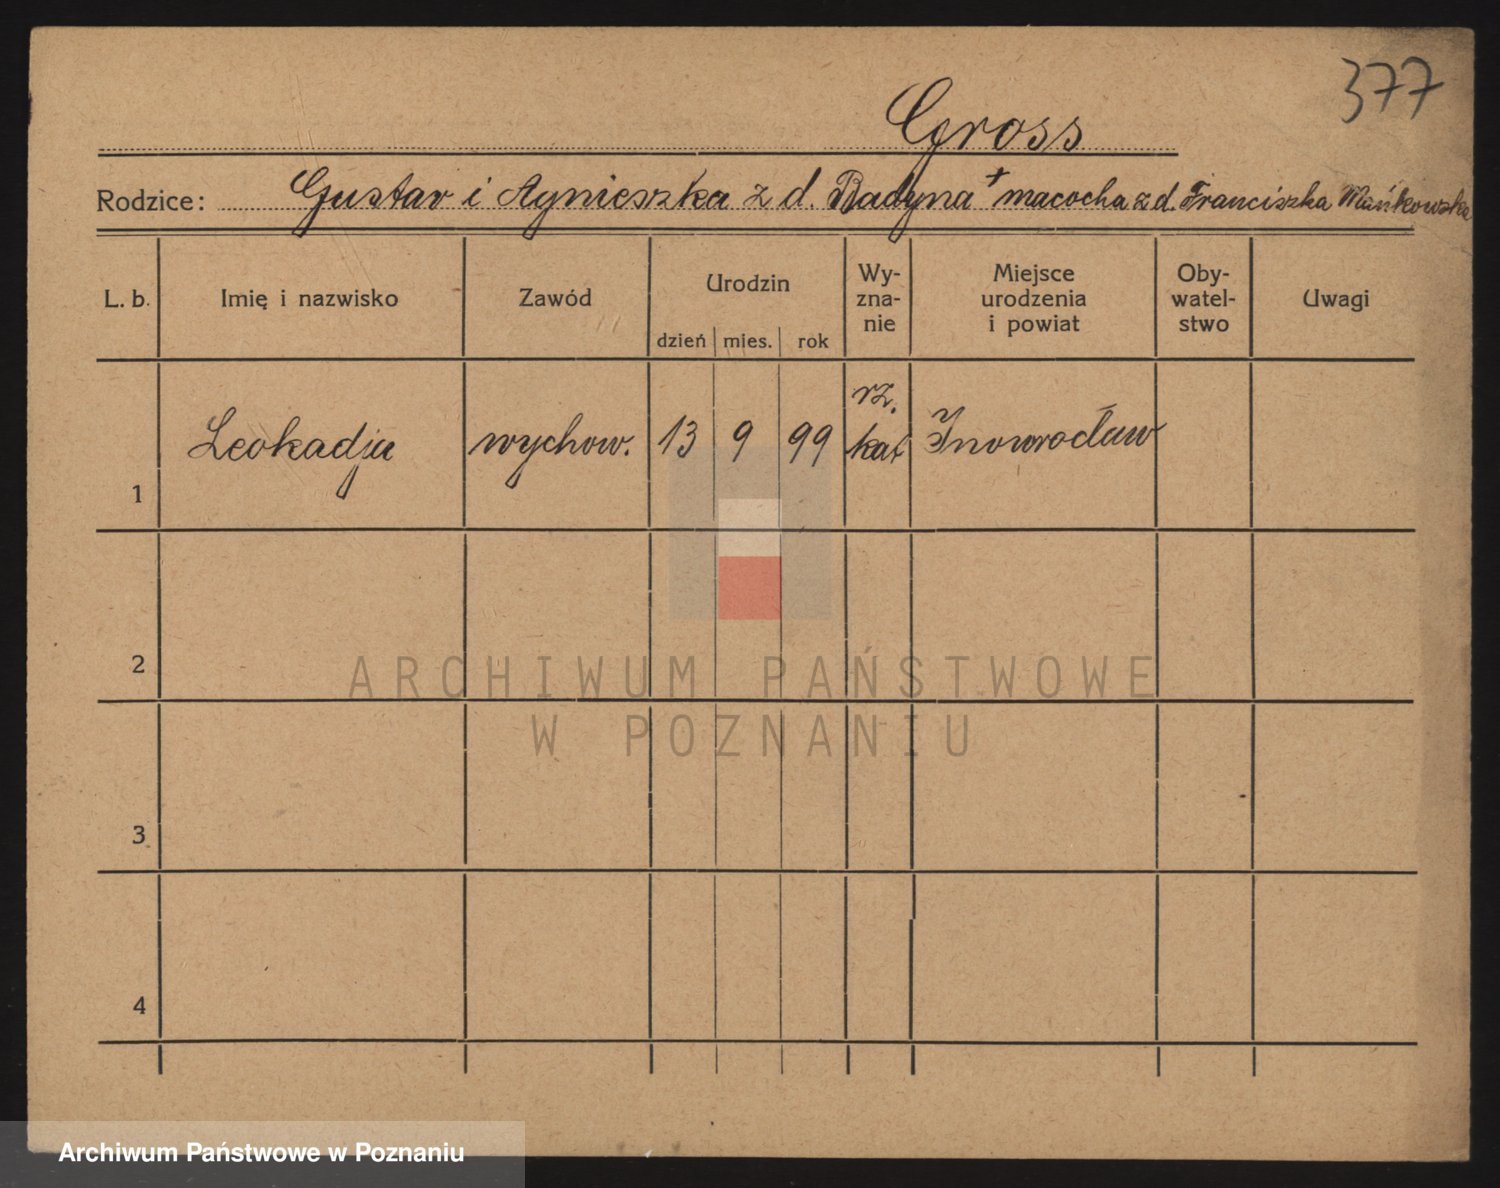 377
Gross
Rodzice: Gustav i Agnieszka z d. Radyna + macocha z d. Franciszka Mańkowska
L. b. Imię i nazwisko Zawód Urodzin dzień mies. rok Wy-zna-nie Miejsce urodzenia i powiat Oby-watel-stwo Uwagi
1 Leokadja wychow. 13 9 99 rz. kat Inowrocław
2
ARCHIWUM PAŃSTWOWE
W POZNANIU
3
4
Archiwum Państwowe w Poznaniu